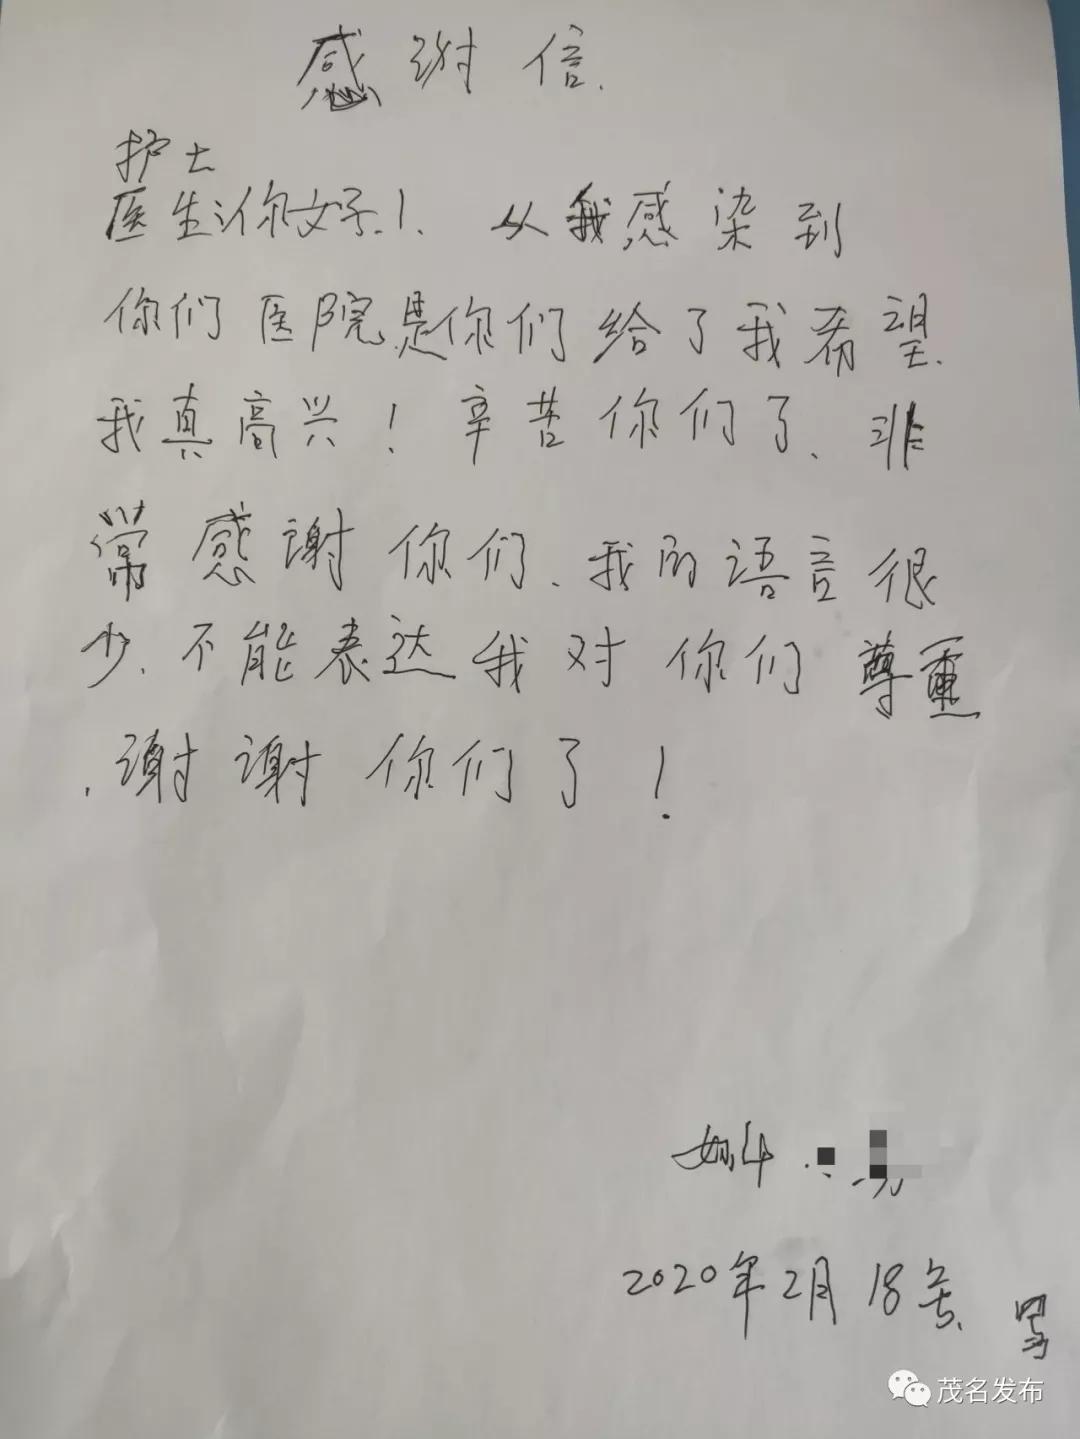 感谢信.
护士
医生你好!. 从我感染到
你们医院.是你们给了我希望.
我真高兴! 辛苦你们了. 非
常感谢你们. 我的语言很
少. 不能表达我对你们尊重
. 谢谢你们了!
2020年2月18号.
写
茂名发布